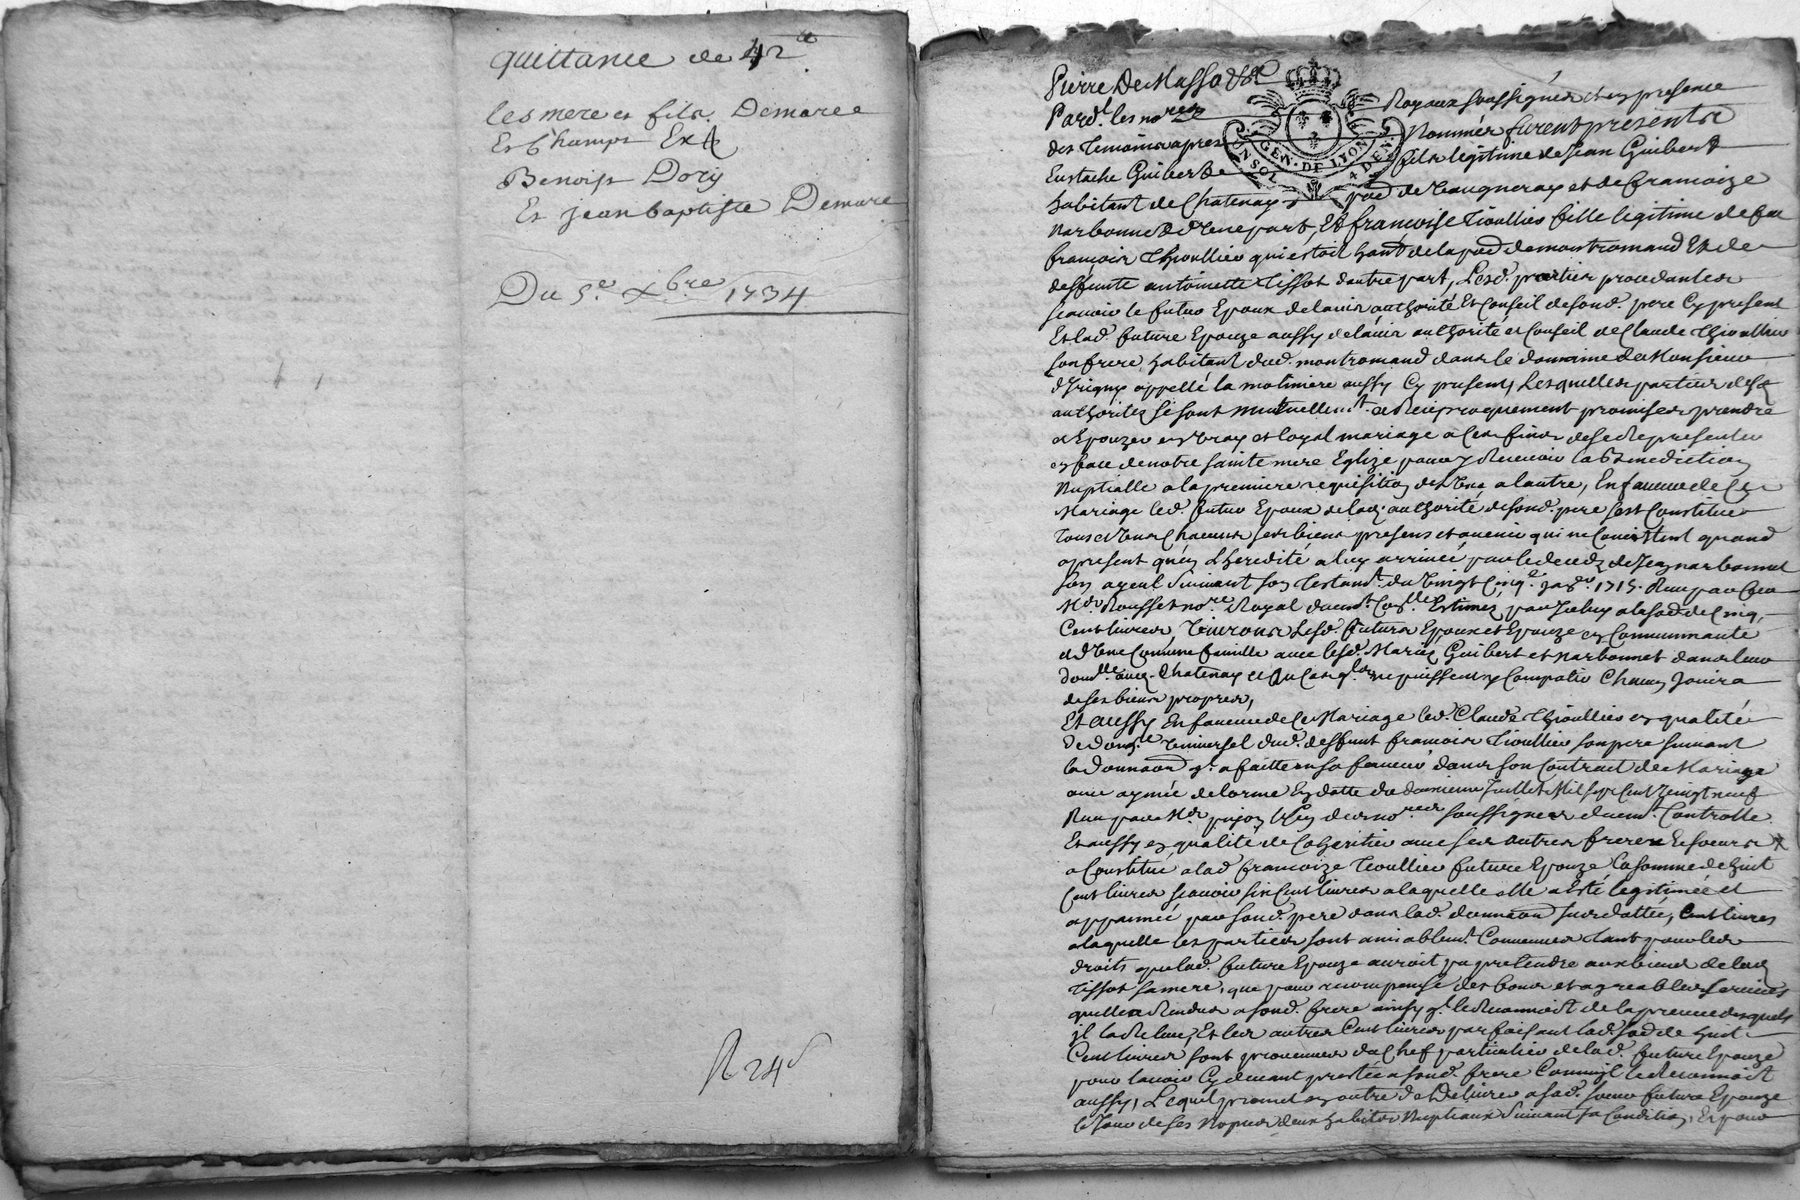 quittance de 42ᵗᵗ
les mere et fils Demaree
Et Champs Ex
Benoist Dory
Et jean baptiste Demare
Du 5.e xbre 1734
R 24ˢ
Pierre De Masso &c
Royaux soussignés et en presence
Pard.t les nores
GEN. DE LYON
4 DEN
des temoins apres
Nommés furent presents
Eustache Guibert
fils legitime de Jean Guibert
habitant de Chatenay
de Vaugneray et de francoize
Narbonne d'Vne part, Et françoise Tioullier fille legitime de feu
francois Thioullier qui estoit hant de la par de montromand Et de
deffunte antoinette Tissot d'autre part, Lesd. parties procedantes
scavoir le futur Epoux de lavis authorité Et Conseil de sond. pere Cy present
Et lad. future Epouze aussy de lavis authorité et Conseil de Claude Thioullier
son frere habitant dud. montromand dans le domaine de Monsieur
d'Yrigny appellé la motiniere aussy Cy present, Lesquelles parties de
authorités se sont mutuellemt. et Reciproquement promises prendre
et Epouzer en vray et loyal mariage a Ces fins de se Representer
en face de notre sainte mere Eglize pour y Recevoir la Benediction
Nuptialle a la premiere requisition de l'Vne a lautre, En faveur de Ce
Mariage led. futur Epoux de lad. authorité de sond. pere s'est Constitué
tous et Vns Chacuns ses biens presens et avenir qui ne Consistent quand
apresent qu'en L'heredité a luy arrivée par le decedz de Jean narbonnet
son ayeul suivant son testamt. du Vingt Cinq.e 1715. Reçu par
Me Rousset nore. Royal duemt. Estimez par a la so de Cinq
Cent livres, Vivrons Lesd. futurs Epoux et Epouze en Communauté
et d'Vne Comune famille avec lesd. Mariez Guibert et narbonnet dans leur
domlle. aud. Chatenay et compatir Chacun Jouira
de ses biens propres,
Et aussy En faveur de Ce Mariage led. Claude Thioullier en qualité
de donre. Vniversel dud. deffunt francois Tioullier son pere suivant
la donnaon qt. a faitte en sa faveur dans son Contract de Mariage
avec aymée delorme En datte du douzieme Juillet Mil sept Cent Vingt neuf
Reçu par Me. nores soussignés duemt. Controllé
Et aussy en qualité de Coheritier avec ses autres freres Et soeurs
a Constitué a lad. francoize Tioullier future Epouze la somme de huit
Cent livres scavoir six Cent livres a laquelle elle a Esté legitimée et
appanée par sond. pere dans lad. donnaon susdattée, Cent livres
a laquelle les parties sont amiablemt. Convenues tant pour les
droits que lad. future Epouze auroit pu pretendre aux biens de lad.
Tissot sa mere, que pour recompense des bons et agreables services
quelle a Rendus a sond. frere ainsy qt. le Reconnoit de la preuve desquels
jl la Releve, Et les autres Cent livres parfaisant lad. so de huit
Cent livres sont provenues du Chef particulier de lad. future Epouze
pour lavoir Cy devant prestée a sond. frere Comme jl le Reconnoit
aussy, Lequel promet en outre de Delivrer a sad. soeur future Epouze
le jour de ses Nopces deux habits Nuptiaux Suivant sa Condition, Et pour